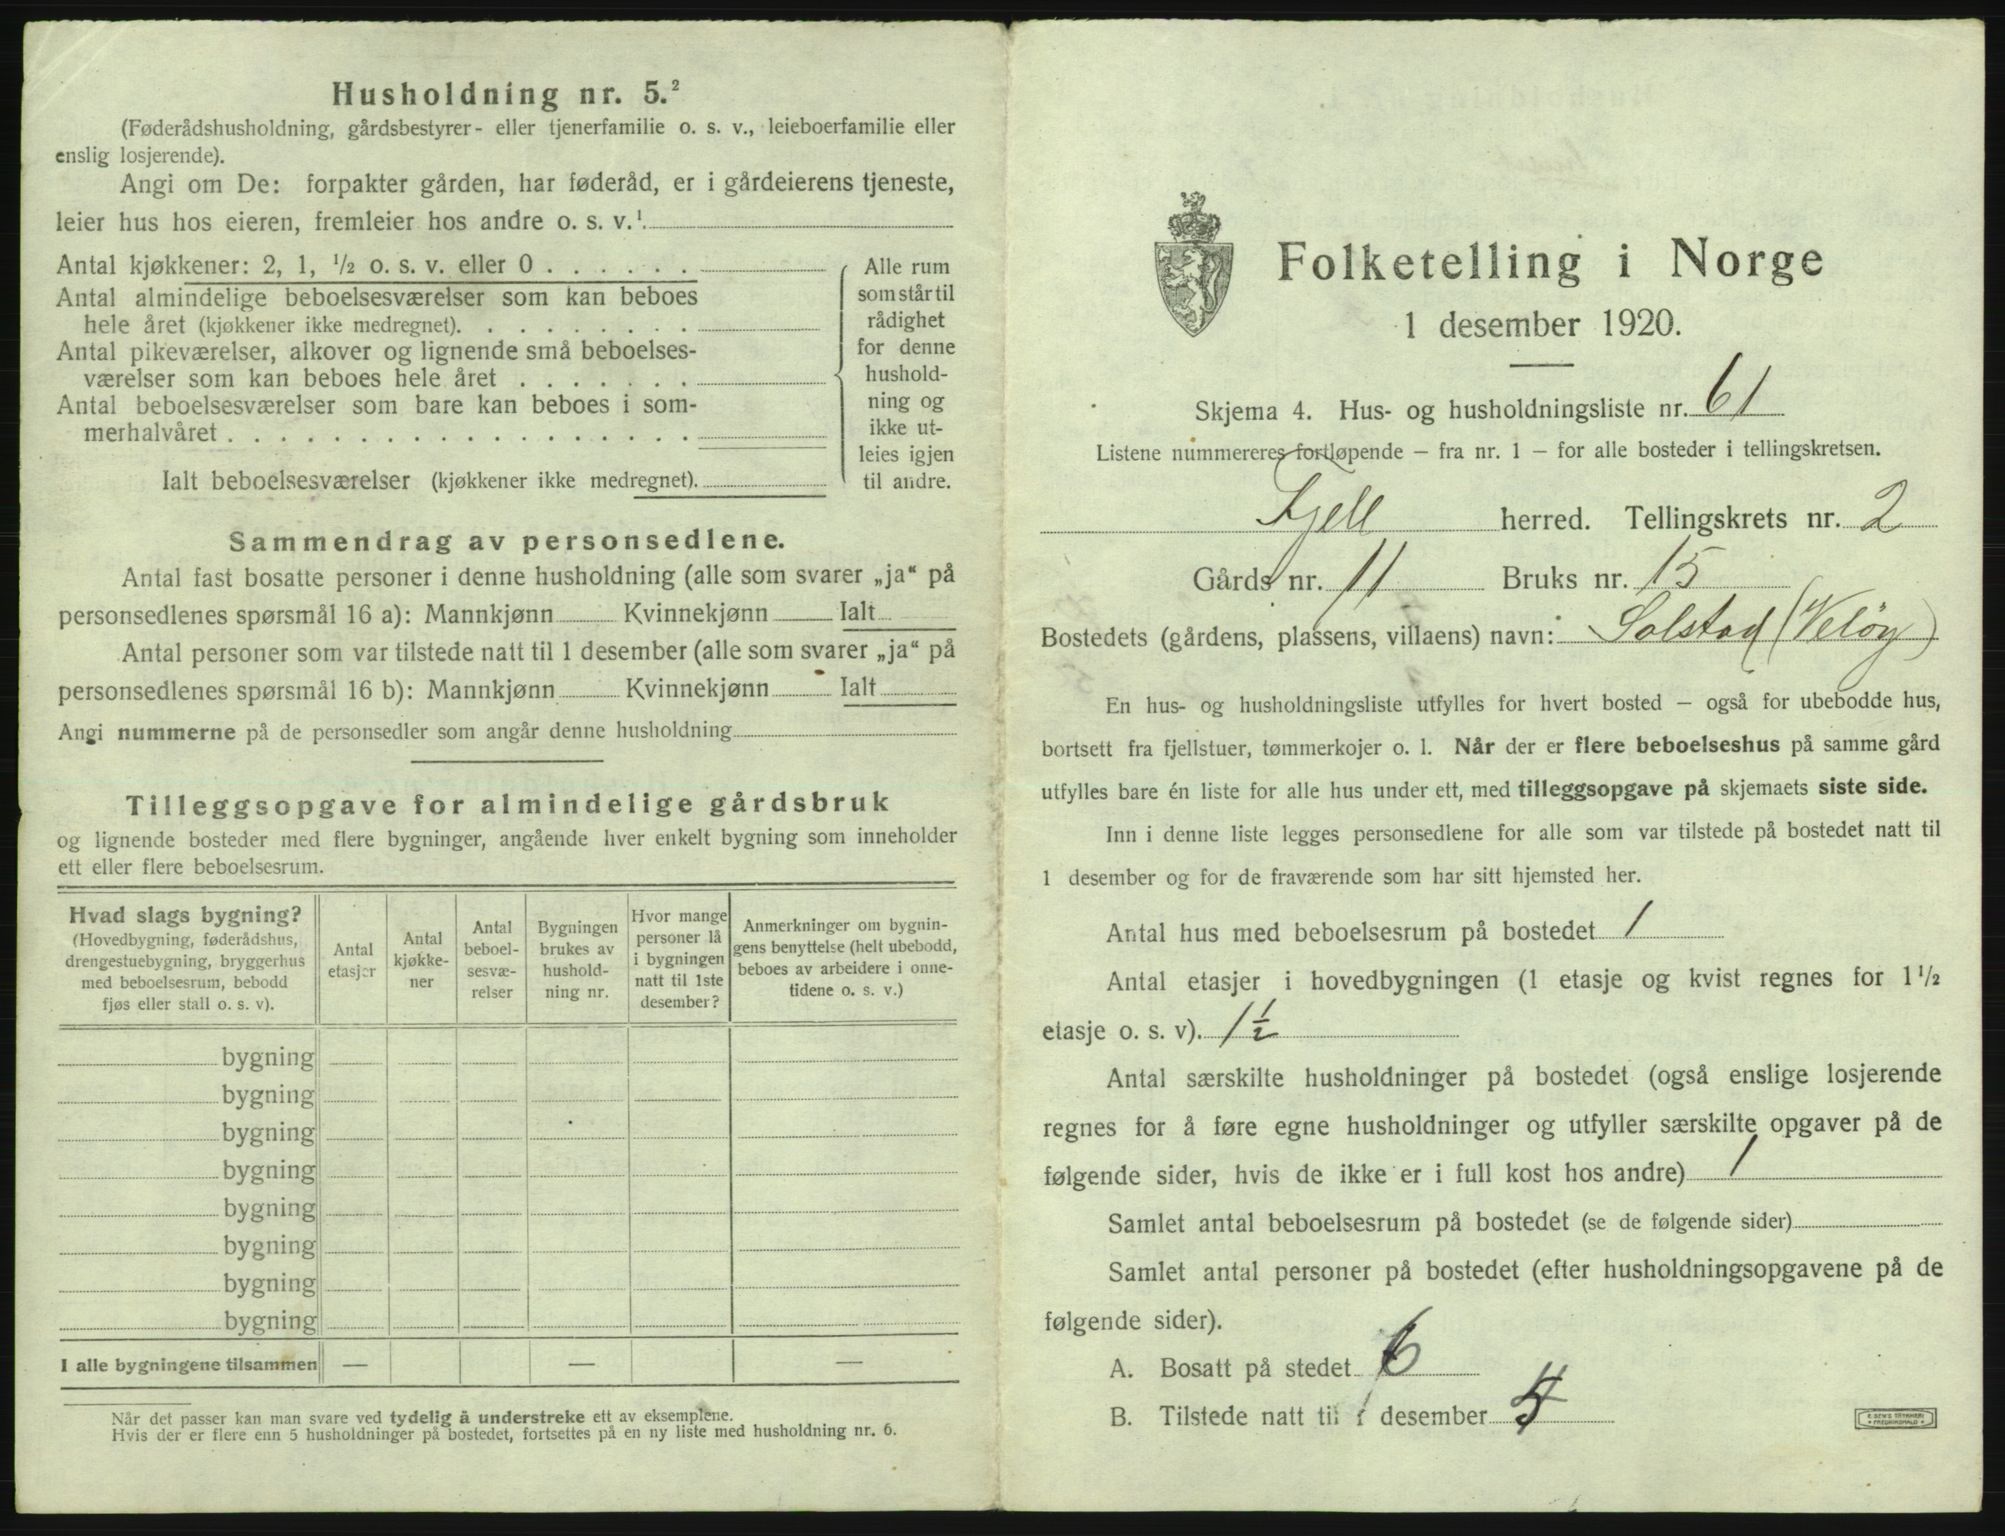 Husholdning nr. 5.²
(Føderådshusholdning, gårdsbestyrer- eller tjenerfamilie o. s. v., leieboerfamilie eller
enslig losjerende).
Angi om De: forpakter gården, har føderåd, er i gårdeierens tjeneste,
leier hus hos eieren, fremleier hos andre o. s. v.¹
Antal kjøkkener: 2, 1, ½ o. s. v. eller 0
Antal almindelige beboelsesværelser som kan beboes
hele året (kjøkkener ikke medregnet).
Antal pikeværelser, alkover og lignende små beboelses-
værelser som kan beboes hele året
Antal beboelsesværelser som bare kan beboes i som-
merhalvåret
Ialt beboelsesværelser (kjøkkener ikke medregnet).
Alle rum
som står til
rådighet
for denne
hushold-
ning og
ikke ut-
leies igjen
til andre.
Sammendrag av personsedlene.
Antal fast bosatte personer i denne husholdning (alle som svarer „ja“ på
personsedlenes spørsmål 16 a): Mannkjønn Kvinnekjønn Ialt
Antal personer som var tilstede natt til 1 desember (alle som svarer „ja“ på
personsedlenes spørsmål 16 b): Mannkjønn Kvinnekjønn Ialt
Angi nummerne på de personsedler som angår denne husholdning
Tilleggsopgave for almindelige gårdsbruk
og lignende bosteder med flere bygninger, angående hver enkelt bygning som inneholder
ett eller flere beboelsesrum.
Hvad slags bygning?
(Hovedbygning, føderådshus,
drengestuebygning, bryggerhus
med beboelsesrum, bebodd
fjøs eller stall o. s. v).
Antal
etasjer
Antal
kjøkke-
ner
Antal
beboel-
sesvæ-
relser
Bygningen
brukes av
hushold-
ning nr.
Hvor mange
personer lå
i bygningen
natt til 1ste
desember?
Anmerkninger om bygnin-
gens benyttelse (helt ubebodd,
beboes av arbeidere i onne-
tidene o. s. v.)
bygning
bygning
bygning
bygning
bygning
bygning
bygning
bygning
I alle bygningene tilsammen — — —
Når det passer kan man svare ved tydelig å understreke ett av eksemplene.
Hvis der er flere enn 5 husholdninger på bostedet, fortsettes på en ny liste med husholdning nr. 6.
Folketelling i Norge
1 desember 1920.
Skjema 4. Hus- og husholdningsliste nr. 61
Listene nummereres fortløpende – fra nr. 1 – for alle bosteder i tellingskretsen.
Fjell herred. Tellingskrets nr. 2
Gårds nr. 11 Bruks nr. 15
Bostedets (gårdens, plassens, villaens) navn: Solstad (Veløy)
En hus- og husholdningsliste utfylles for hvert bosted – også for ubebodde hus,
bortsett fra fjellstuer, tømmerkojer o. l. Når der er flere beboelseshus på samme gård
utfylles bare én liste for alle hus under ett, med tilleggsopgave på skjemaets siste side.
Inn i denne liste legges personsedlene for alle som var tilstede på bostedet natt til
1 desember og for de fraværende som har sitt hjemsted her.
Antal hus med beboelsesrum på bostedet 1
Antal etasjer i hovedbygningen (1 etasje og kvist regnes for 1½
etasje o. s. v). 1½
Antal særskilte husholdninger på bostedet (også enslige losjerende
regnes for å føre egne husholdninger og utfyller særskilte opgaver på de
følgende sider, hvis de ikke er i full kost hos andre) 1
Samlet antal beboelsesrum på bostedet (se de følgende sider)
Samlet antal personer på bostedet (efter husholdningsopgavene på de
følgende sider).
A. Bosatt på stedet 6
B. Tilstede natt til 1 desember